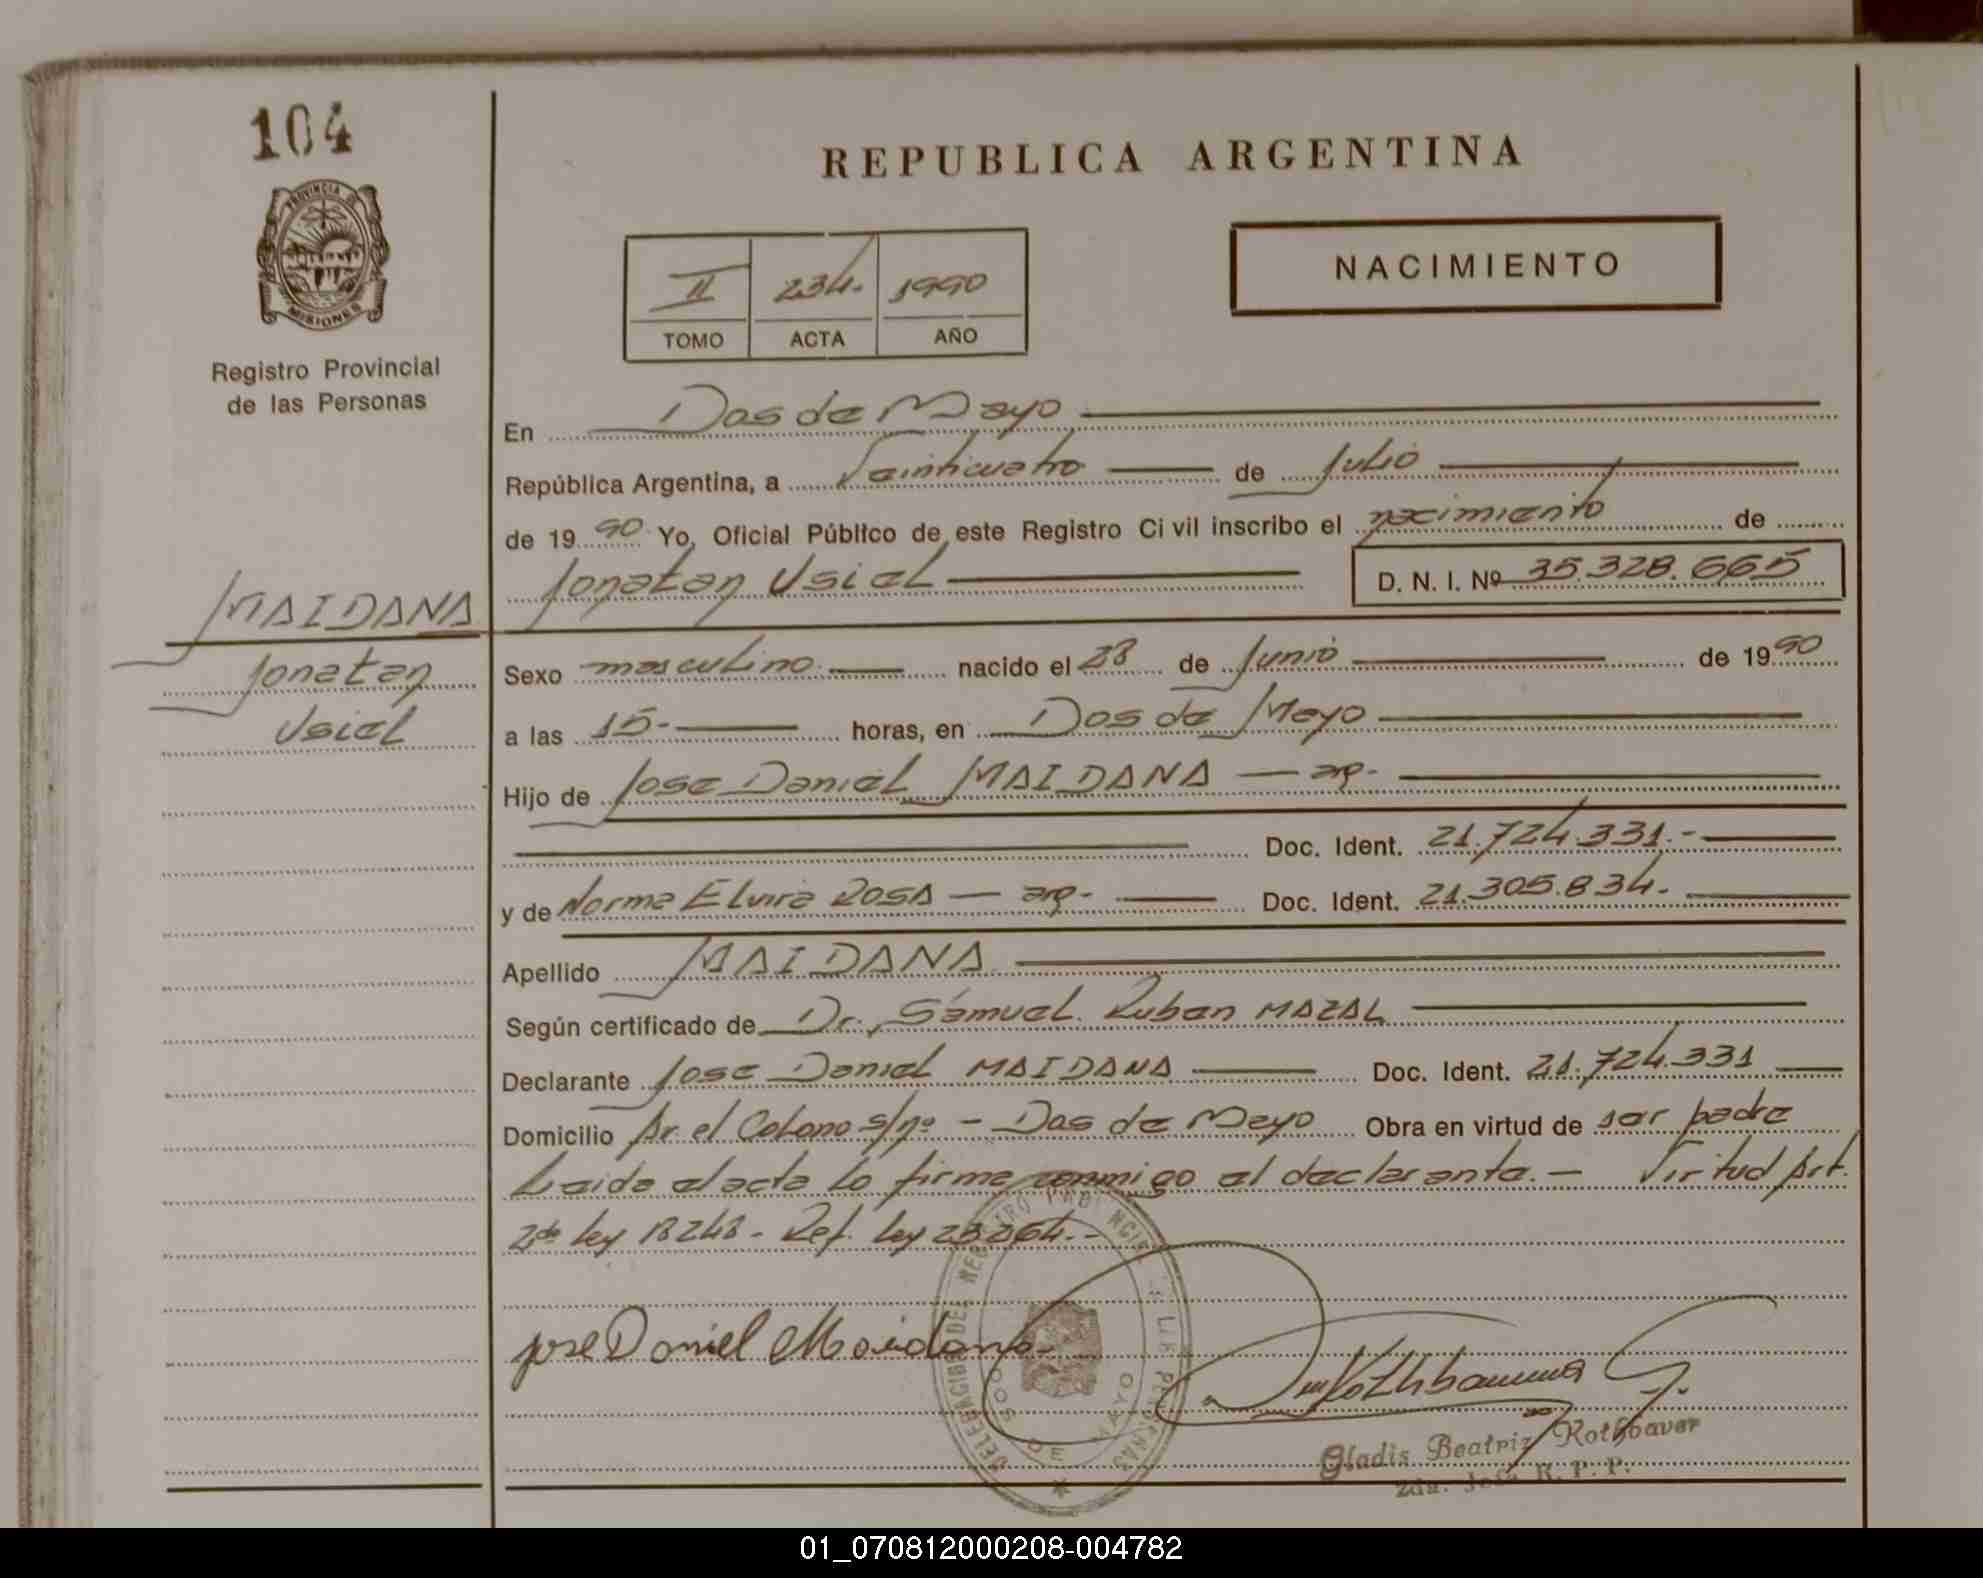 104
PROVINCIA DE
MISIONES
Registro Provincial
de las Personas
REPUBLICA ARGENTINA
II 234. 1990
TOMO ACTA AÑO
NACIMIENTO
En Dos de Mayo
República Argentina, a Veinticuatro de Julio
de 1990 Yo, Oficial Público de este Registro Civil inscribo el nacimiento de
Jonatan Usiel D. N. I. Nº 35.328.665
MAIDANA
Jonatan
Usiel
Sexo masculino. nacido el 28 de Junio de 1990
a las 15- horas, en Dos de Mayo
Hijo de Jose Daniel MAIDANA — arg-
Doc. Ident. 21.724.331.-
y de Norma Elvira ROSA — arg- Doc. Ident. 21.305.834.
Apellido MAIDANA
Según certificado de Dr. Samuel Ruben MAZAL
Declarante Jose Daniel MAIDANA Doc. Ident. 21.724.331
Domicilio Av. el Colono s/nº - Dos de Mayo Obra en virtud de ser padre
Leida el acta lo firma conmigo el declarante.- Viritud Art.
2do ley 18248- Ref. ley 23264.-
DELEGACION DEL REGISTRO PROVINCIAL DE LAS PERSONAS
DOS DE MAYO
Jose Daniel Maidana
Gladis Beatriz Rothbaver
2da. Jefe R. P. P.
01_070812000208-004782